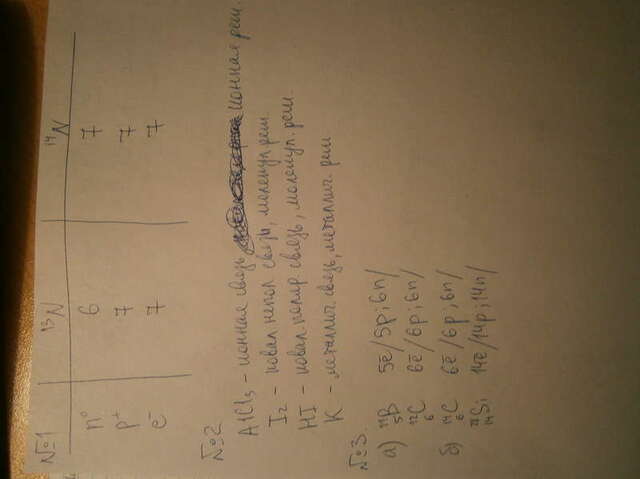 №1
¹³N ¹⁴N
n⁰ 6 7
p⁺ 7 7
e⁻ 7 7
№2
AlCl₃ - ионная связь ионная реш.
I₂ - ковал. непол. связь, молекул. реш.
HI - ковал. поляр. связь, молекул. реш.
K - металлич. связь, металлич. реш
№3.
а) ¹¹₅B 5ē/5p; 6n/
¹²₆C 6ē/6p; 6n/
б) ¹⁴₆C 6ē/6p; 6n/
²⁸₁₄Si 14ē/14p; 14n/